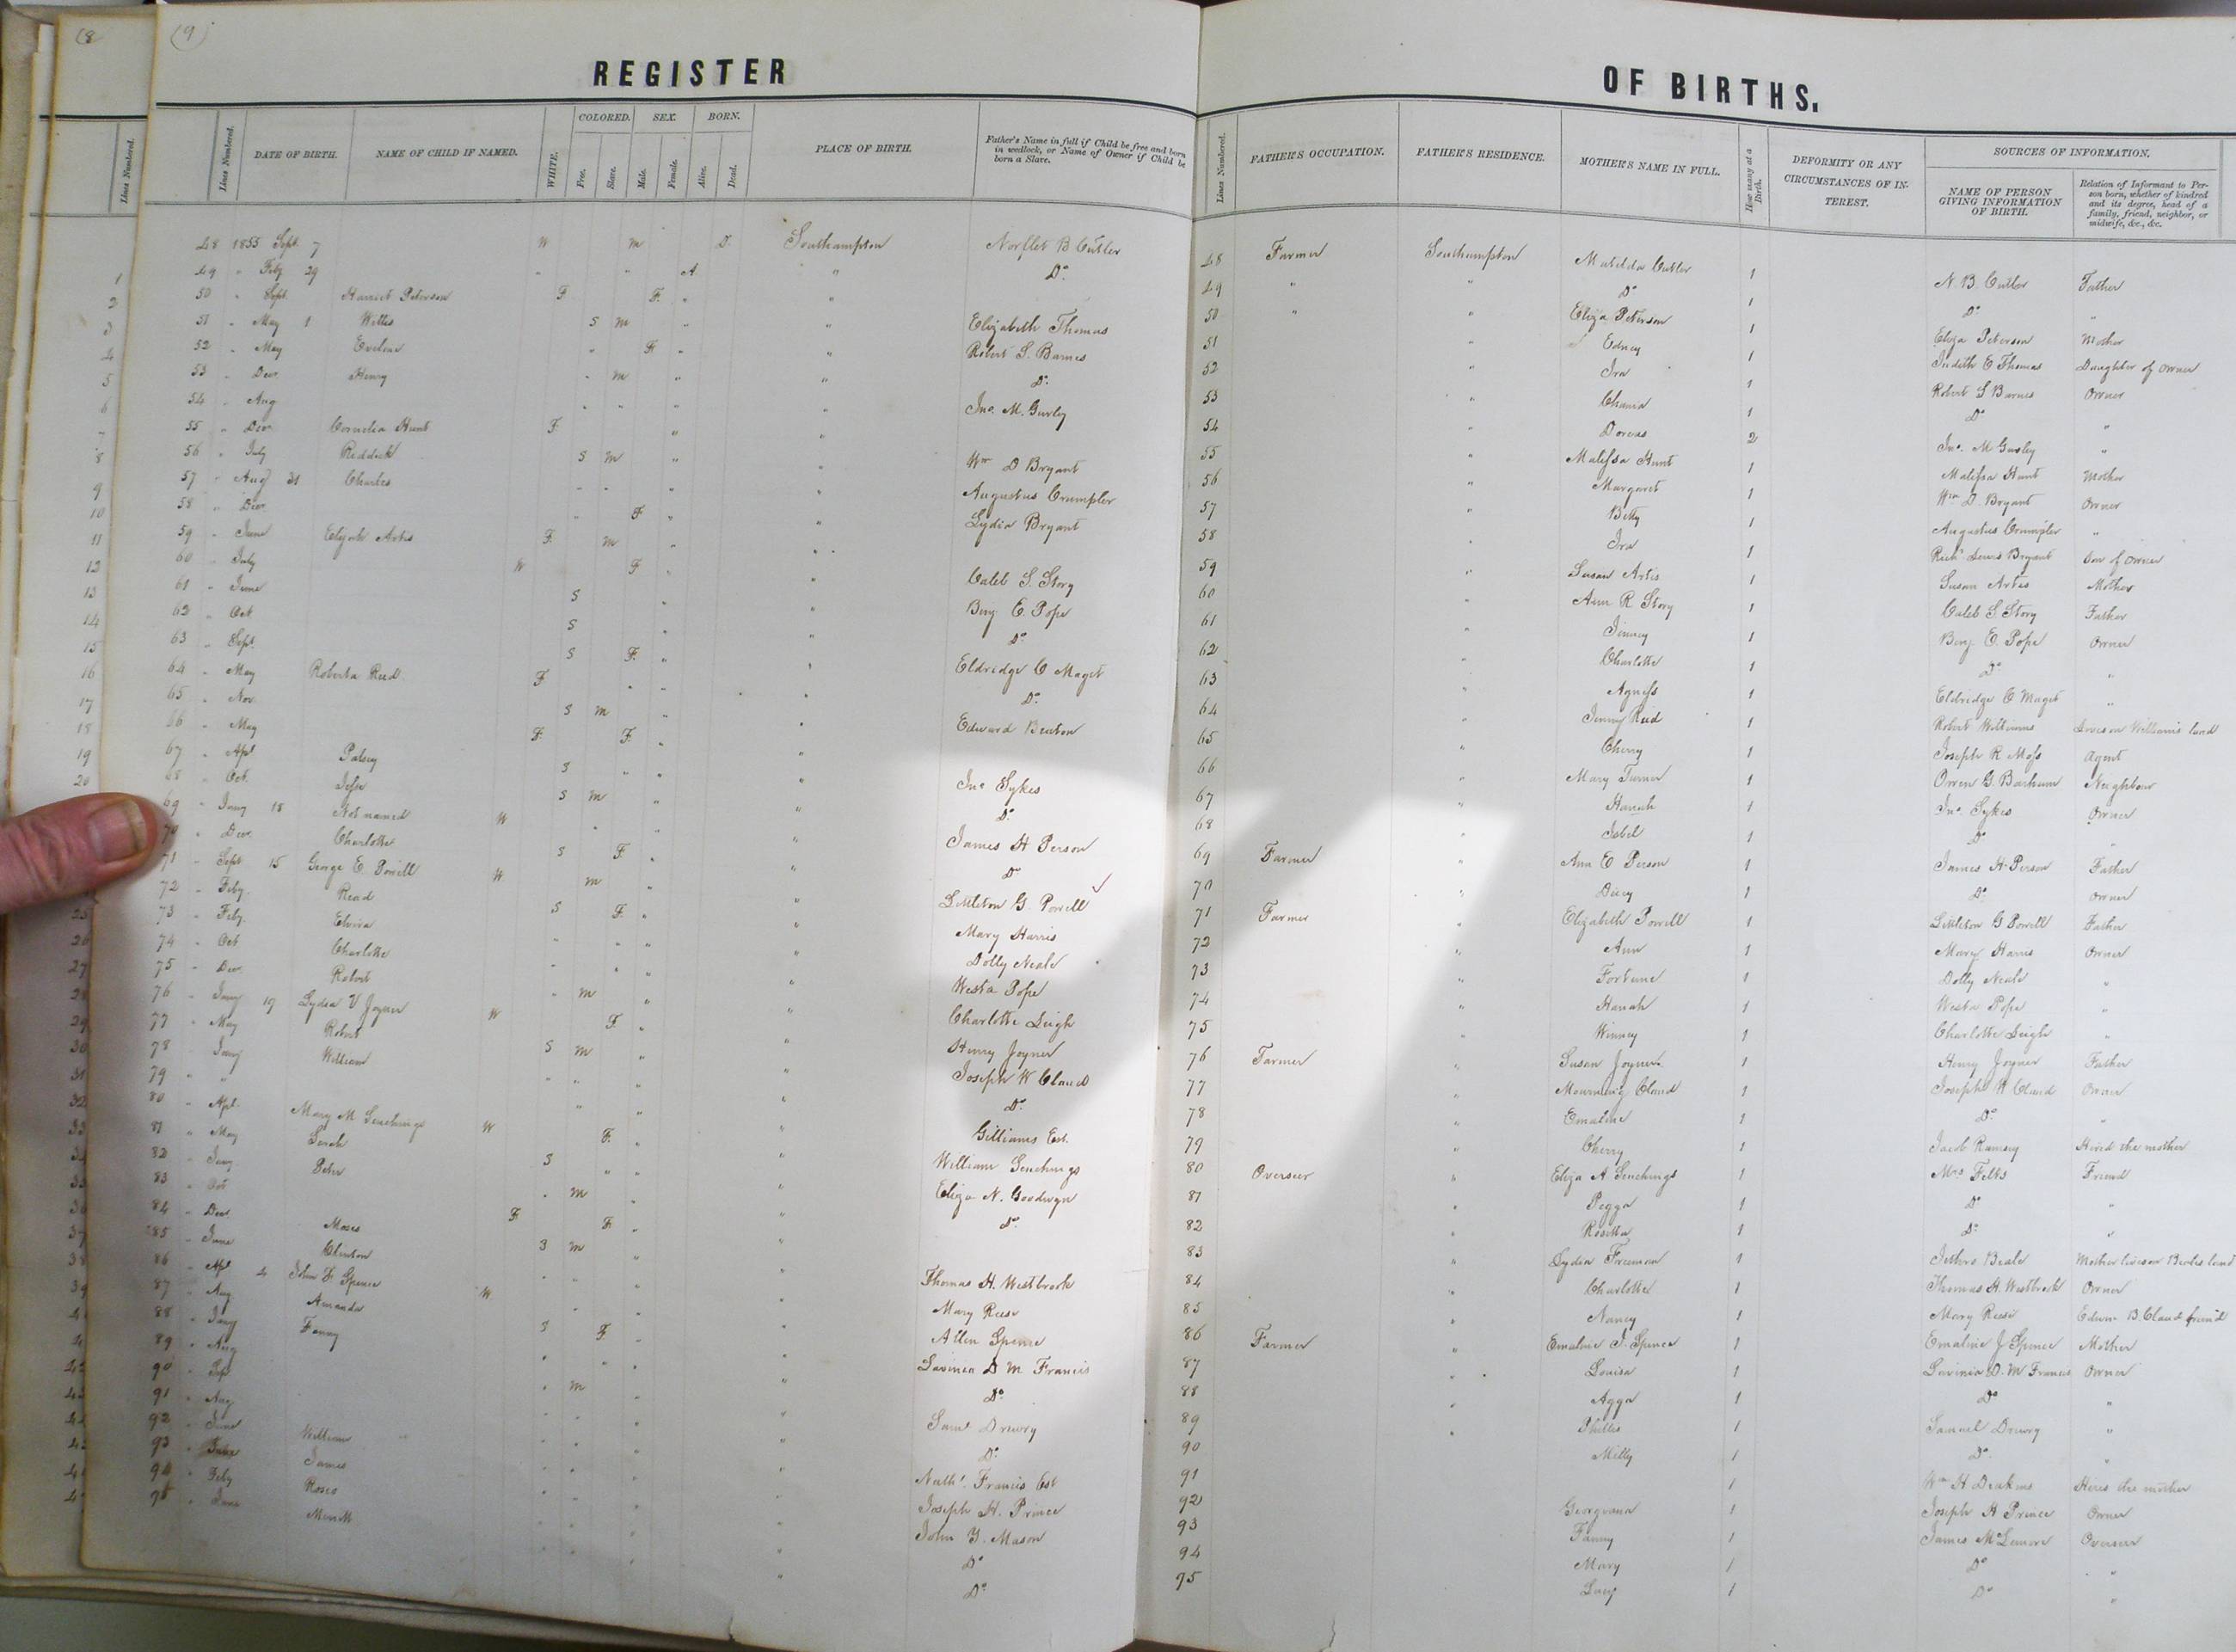 (8 (9)
REGISTER OF BIRTHS.
Lines Numbered. Lines Numbered. DATE OF BIRTH. NAME OF CHILD IF NAMED. WHITE. COLORED. Free. Slave. SEX. Male. Female. BORN. Alive. Dead. PLACE OF BIRTH. Father's Name in full if Child be free and born in wedlock, or Name of Owner if Child be born a Slave. Lines Numbered. FATHER'S OCCUPATION. FATHER'S RESIDENCE. MOTHER'S NAME IN FULL. How many at a Birth. DEFORMITY OR ANY CIRCUMSTANCES OF INTEREST. SOURCES OF INFORMATION. NAME OF PERSON GIVING INFORMATION OF BIRTH. Relation of Informant to Person born, whether of kindred and its degree, head of a family, friend, neighbor, or midwife, &c., &c.
48 1855 Sept. 7 W M D. Southampton Norflet B Cutler 48 Farmer Southampton Matilda Cutler 1 N. B. Cutler Father
49 " Feby 29 " " A " Do. 49 " " Do 1 Do. "
50 " Sept. Harriet Peterson F F. " " 50 " " Eliza Peterson 1 Eliza Peterson Mother
51 " May 1 Willis S M " " Elizabeth Thomas 51 " Edney 1 Judith E Thomas Daughter of owner
52 " May Eveline " F. " " Robert S. Barnes 52 " Ira 1 Robert S Barnes Owner
53 " Dec. Henry " M " " Do. 53 " Chania 1 Do "
54 " Aug " " " " Jno. M. Gurley 54 " Dorcas 2 Jno. M Gurley "
55 " Dec. Cornelia Hunt F. " " 55 " Malissa Hunt 1 Malissa Hunt Mother
56 " July Riddick S M " " Wm D Bryant 56 " Margaret 1 Wm D. Bryant Owner
57 " Aug 31 Charles " " " " Augustus Crumpler 57 " Betty 1 Augustus Crumpler "
58 " Dec. " F " " Lydia Bryant 58 " Ira 1 Richd Lewis Bryant Son of owner
59 " June Elijah Artis F. M " " 59 " Susan Artis 1 Susan Artis Mother
60 " July W F " " Caleb S. Story 60 " Ann R Story 1 Caleb S. Story Father
61 " June S " " Benj. E. Pope 61 " Jinney 1 Benj. E. Pope Owner
62 " Oct S " " Do 62 " Charlotte 1 Do "
63 " Sept. S F. " " Eldridge C Maget 63 " Agness 1 Eldridge C Maget "
64 " May Roberta Reed F " " " Do. 64 " Jenny Reed 1 Robert Williams Lives on Williams land
65 " Nov. S M " " Edward Beaton 65 " Cherry 1 Joseph R Moss Agent
66 " May F. F. " " 66 " Mary Turner 1 Owen G. Barham Neighbour
67 " Apl Patsey S " " " Jno Sykes 67 " Hanah 1 Jno. Sykes Owner
68 " Oct. S M " " Do. 68 " Isbel 1 Do "
69 " Jany 18 Not named W " " " James H Person 69 Farmer " Ann E Person 1 James H. Person Father
70 " Dec. Charlotte S F. " " Do 70 " Dicey 1 Do. Owner
71 " Sept 15 George E. Powell W M " " Littleton G. Powell 71 Farmer " Elizabeth Powell 1 Littleton G Powell Father
72 " Feby. Read S F. " " Mary Harris 72 " Ann 1 Mary Harris Owner
73 " Feby. Elvira " " " " Dolly Neale 73 " Fortune 1 Dolly Neale "
74 " Oct Charlotte " " " " Westa Pope 74 " Hanah 1 Westa Pope "
75 " Dec. Robert " M " " Charlotte Leigh 75 " Winney 1 Charlotte Leigh "
76 " Jany 19 Lydia V Joyner W F. " " Henry Joyner 76 Farmer " Susan Joyner 1 Henry Joyner Father
77 " May Robert S M " " Joseph W Claud 77 " Mourning Claud 1 Joseph W Claud Owner
78 " Jany William " " " " Do. 78 " Emaline 1 Do. "
79 " " " " " Gilliams Est. 79 " Cherry 1 Jacob Ramsey Hired the mother
80 " Apl. W F. " " William 80 Overseer " Eliza A 1 Mrs Felts Friend
81 " May Sarah S " " " Eliza N. Goodwyn 81 " Pegga 1 Do "
82 " Jany. Peter " M " " Do. 82 " Rosetta 1 Do. "
83 " Oct F. F. " " 83 " Lydia Freeman 1 Jethro Beale Mother lives on Beales land
84 " Dec. Moses S M " " Thomas H. Westbrook 84 " Charlotte 1 Thomas H. Westbrook Owner
85 " June " " " " Mary Reese 85 " Nancy 1 Mary Reese Edwin B. Claud friend
86 " Apl 4 John F. Spence W " " " Allen Spence 86 Farmer " Emaline J. Spence 1 Emaline J Spence Mother
87 " Aug Amanda S F. " " Lavinia D M Francis 87 " Louisa 1 Lavinia D. M Francis Owner
88 " Jany Fanny " " " " Do 88 " Agga 1 Do "
89 " Aug " M " " Saml Drewry 89 " Phillis 1 Samuel Drewry "
90 " Sep " " " " Do. 90 Milly 1 Do. "
91 " Aug " " " " Nathl. Francis Est 91 1 Wm H Hires the mother
92 " June William " " " " Joseph H. Prince 92 Georgeana 1 Joseph H Prince Owner
93 " June James " " " " John Y. Mason 93 Fanny 1 James McLemore Overseer
94 " Feby " " " " Do 94 Mary 1 Do "
95 " June " " " " Do 95 Lucy 1 Do "